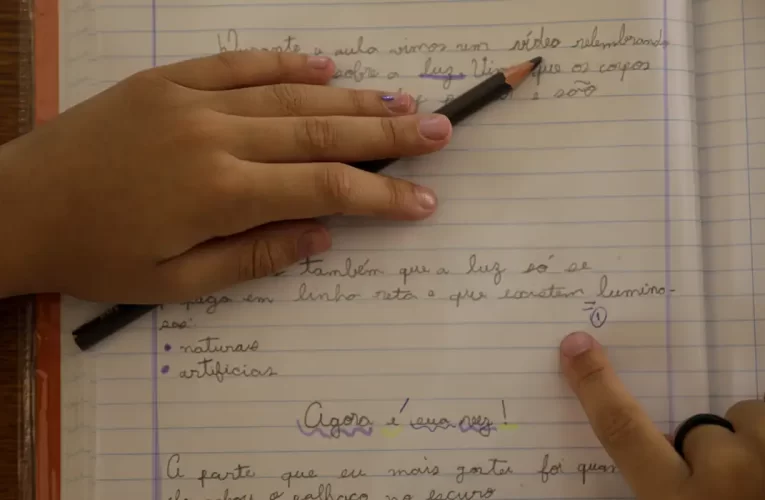 Durante a aula vimos um vídeo relembrando
sobre a luz. Vi que os corpos
e são
também que a luz só se
em linha reta e que existem lumino-
sos:
• naturais
• artificias
①
Agora é sua vez!
A parte que eu mais gostei foi quan
o palhaço no escuro